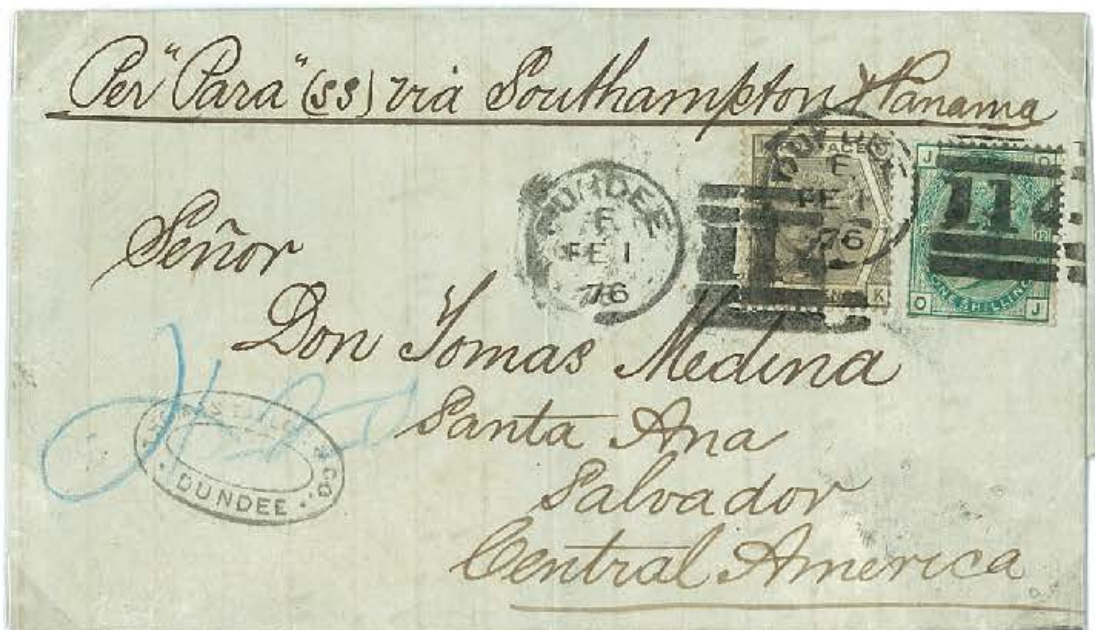 Per "Para" (ss) via Southampton & Panama
DUNDEE
E
FE 1
76
E
FE 1
76
114
J
O
ONE SHILLING
O
J
K
Señor
Don Tomas Medina
Santa Ana
Salvador
Central America
& CO
DUNDEE